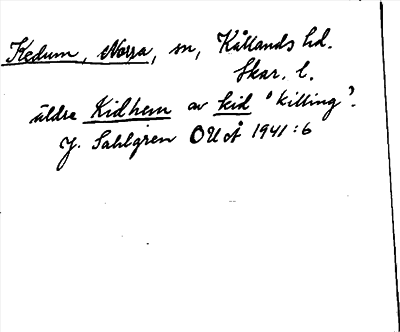 Kedum, Norra, sn, Kållands hd.
Skar. l.
äldre Kidhem av kid 'killing'.
J. Sahlgren OUÅ 1941:6